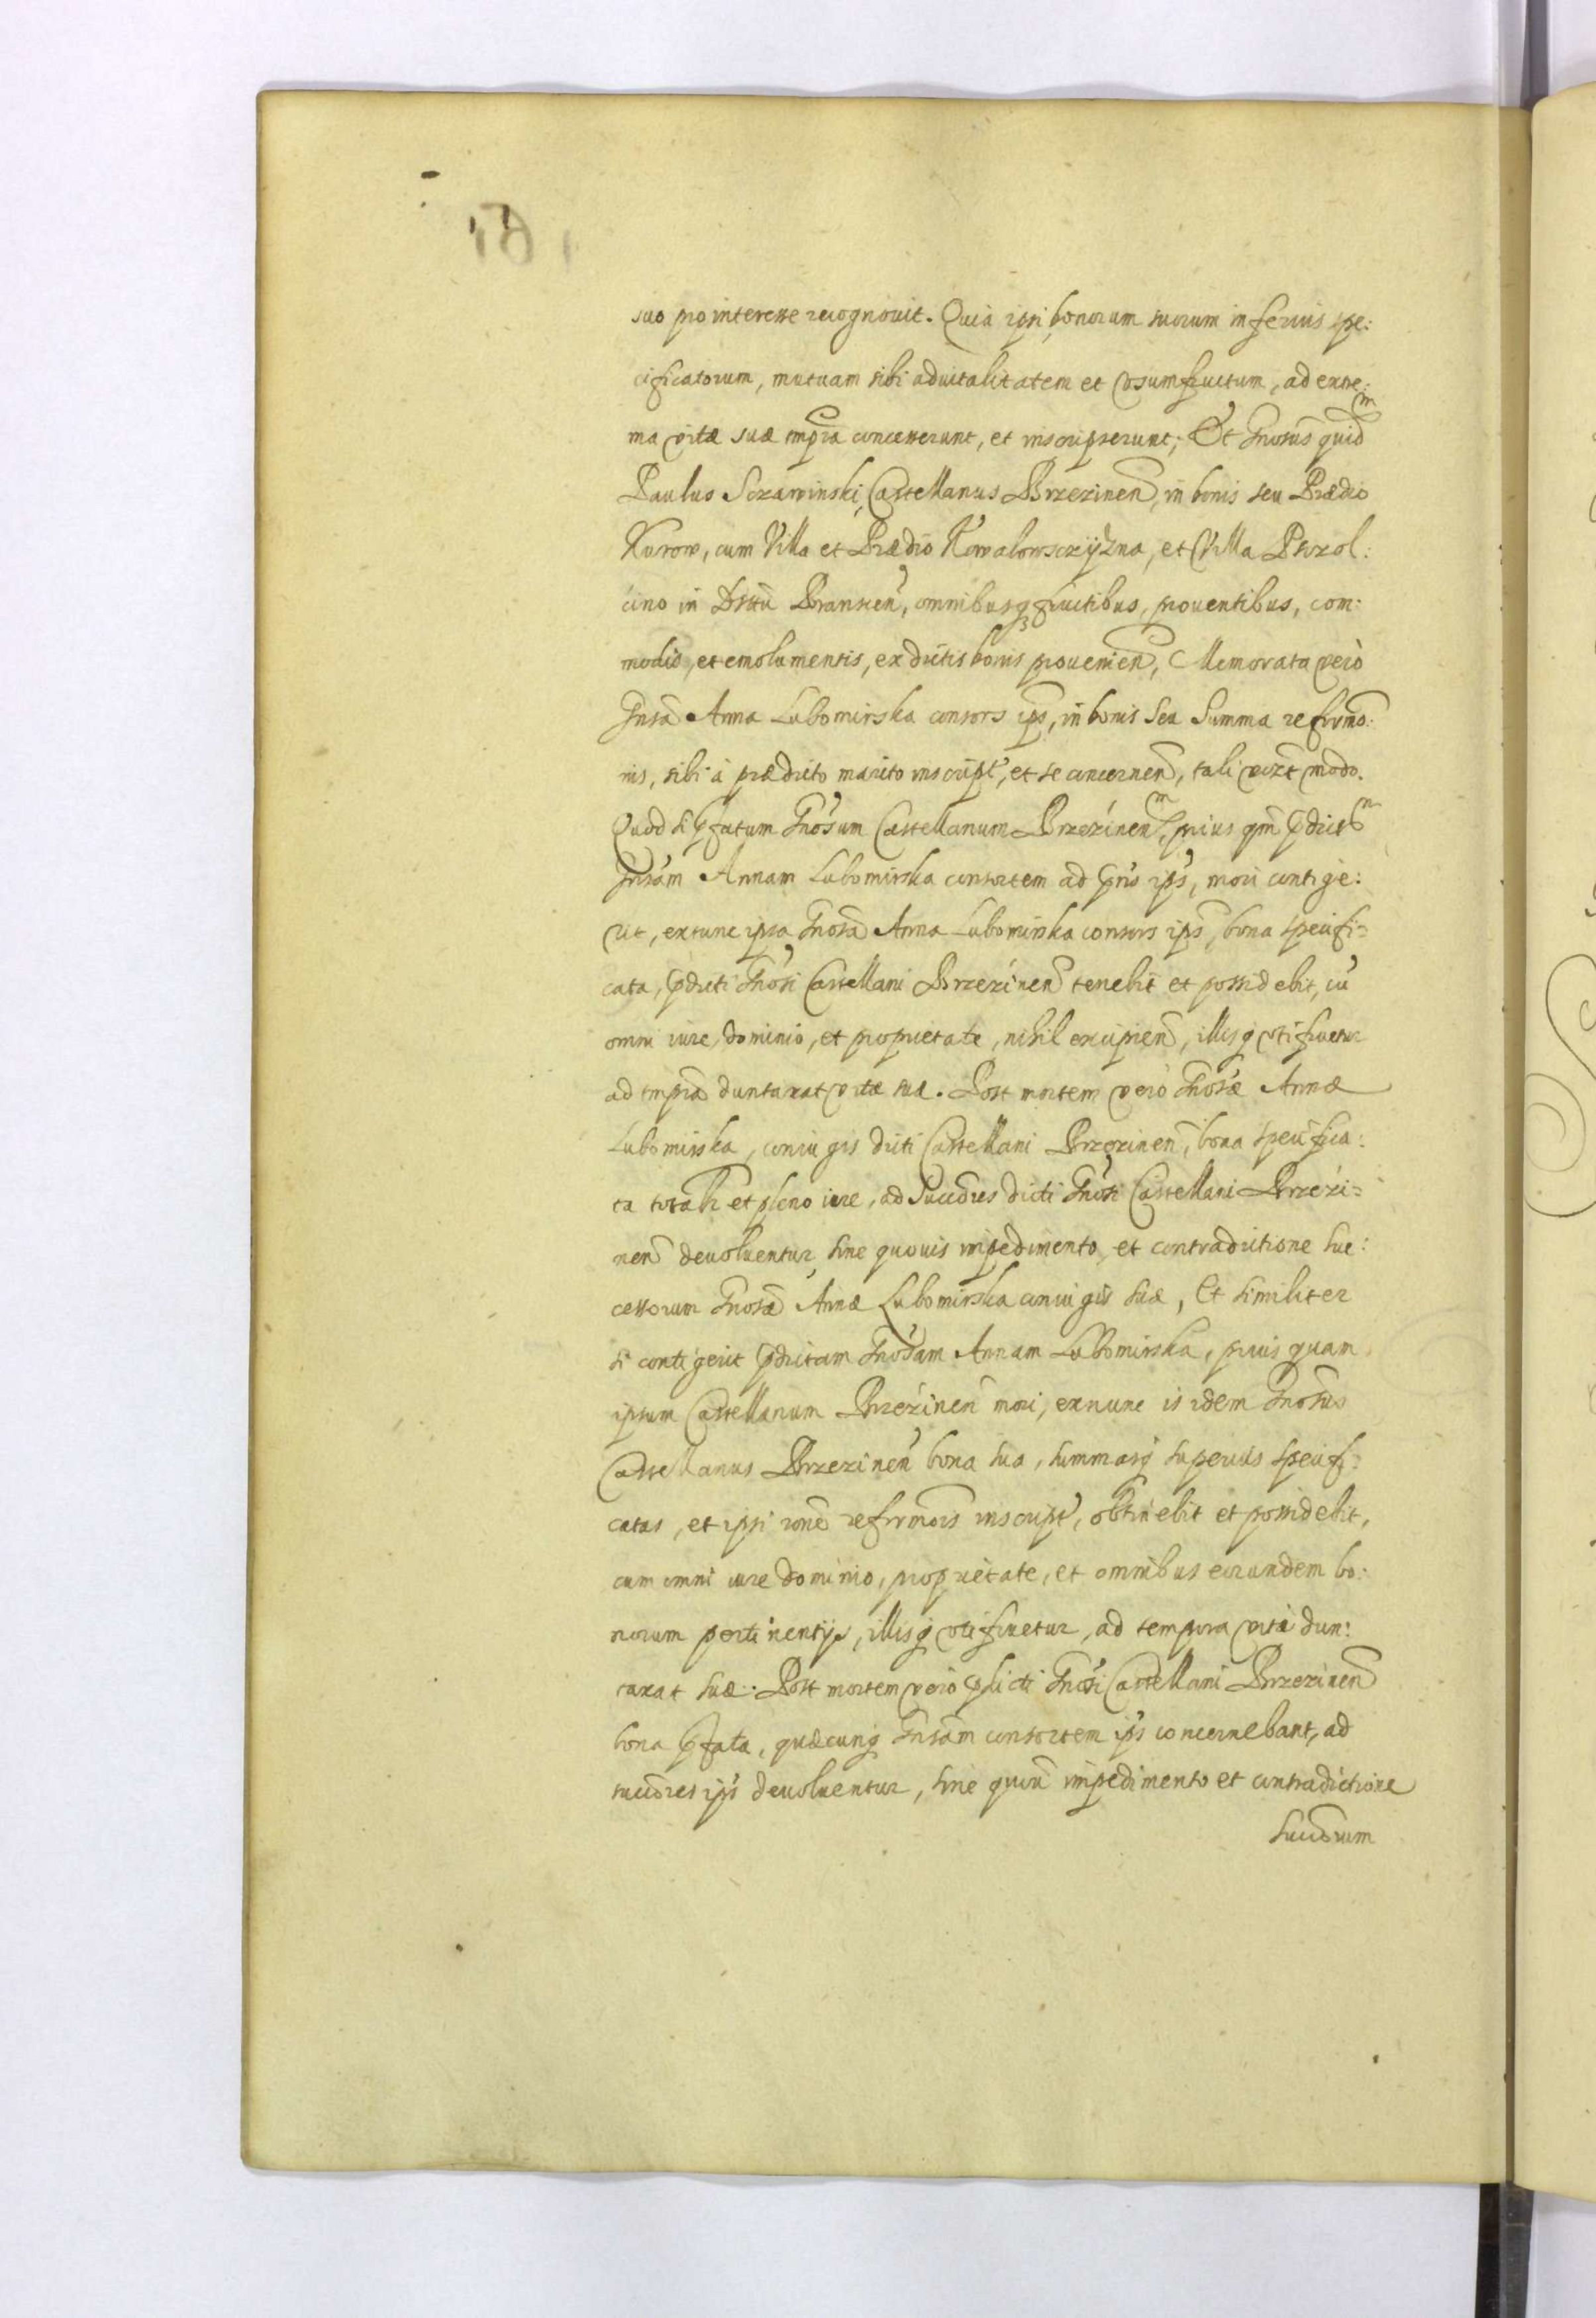 suo pro interesse recognovit. Quia ipsi bonorum suorum inferius spe:
cificatorum, mutuam sibi advitalitatem et vsumfructum, ad extre:
ma vitæ suæ tmpra concesserunt, et inscripserunt; Et Gnosus quidm
Paulus Sczawinski, Castellanus Brzezinen, in bonis seu Prædio
Kurow, cum Villa et Prædio Kowalowsczyzna, et Villa Pszcol:
cino in Dsttu Bransten, omnibusq fructibus, prouentibus, com:
modis, et emolumentis, ex dictis bonis prouenien, Memorata verò
Gnsa Anna Lubomirska consors ips, in bonis seu Summa reformo:
nis, sibi à prædicto marito inscript, et se concernen, tali vizt modo.
Quod si pfatum Gnosum Castellanum Brzezinen, prius qm pdict
Gnsam Annam Lubomirska consortem ad pns ips, mori contige:
rit, extunc ipsa Gnosa Anna Lubomirska consors ips, bona specifi=
cata, pdicti Gnosi Castellani Brzezinen tenebit et possidebit, cu
omni iure, dominio, et proprietate, nihil excipien, illisq vtifruetur
ad tmpra duntaxat vitæ suæ. Post mortem verò Gnosæ Annæ
Lubomirska, coniugis dicti Castellani Brzezinen, bona specifica:
ta totali et pleno iure, ad Succores dicti Gnosi Castellani Brzezi=
nen deuoluentur, sine quouis impedimento, et contradictione suc:
cessorum Gnosæ Annæ Lubomirska coniugis suæ, Et similiter
si contigerit pdictam Gnosam Annam Lubomirska, prius quam
ipsum Castellanum Brzezinen mori, exnunc is idem Gnosus
Castellanus Brzezinen bona sua, summasq superius specifi:
catas, et ipsi rone reformois inscript, obtinebit et possidebit,
cum omni iure dominio, proprietate, et omnibus eorundem bo:
norum pertinentijs, illisq vtifruetur, ad tempora vitæ dun:
taxat suæ. Post mortem verò pdicti Gnosi Castellani Brzezinen
bona pfata, quæcunq Gnsam consortem ips concernebant, ad
succores ips deuoluentur, sine quouis impedimento et contradictione
Succorum